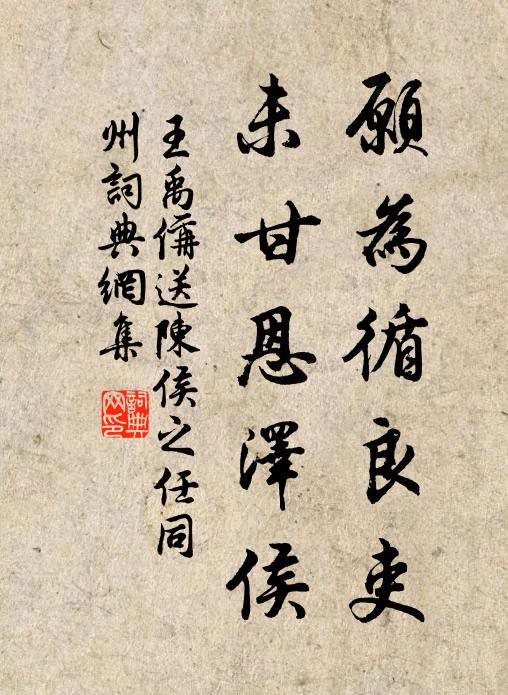 願為循良吏
未甘恩澤侯
王禹偁送陳侯之任同
州詞典網集
詞典網印